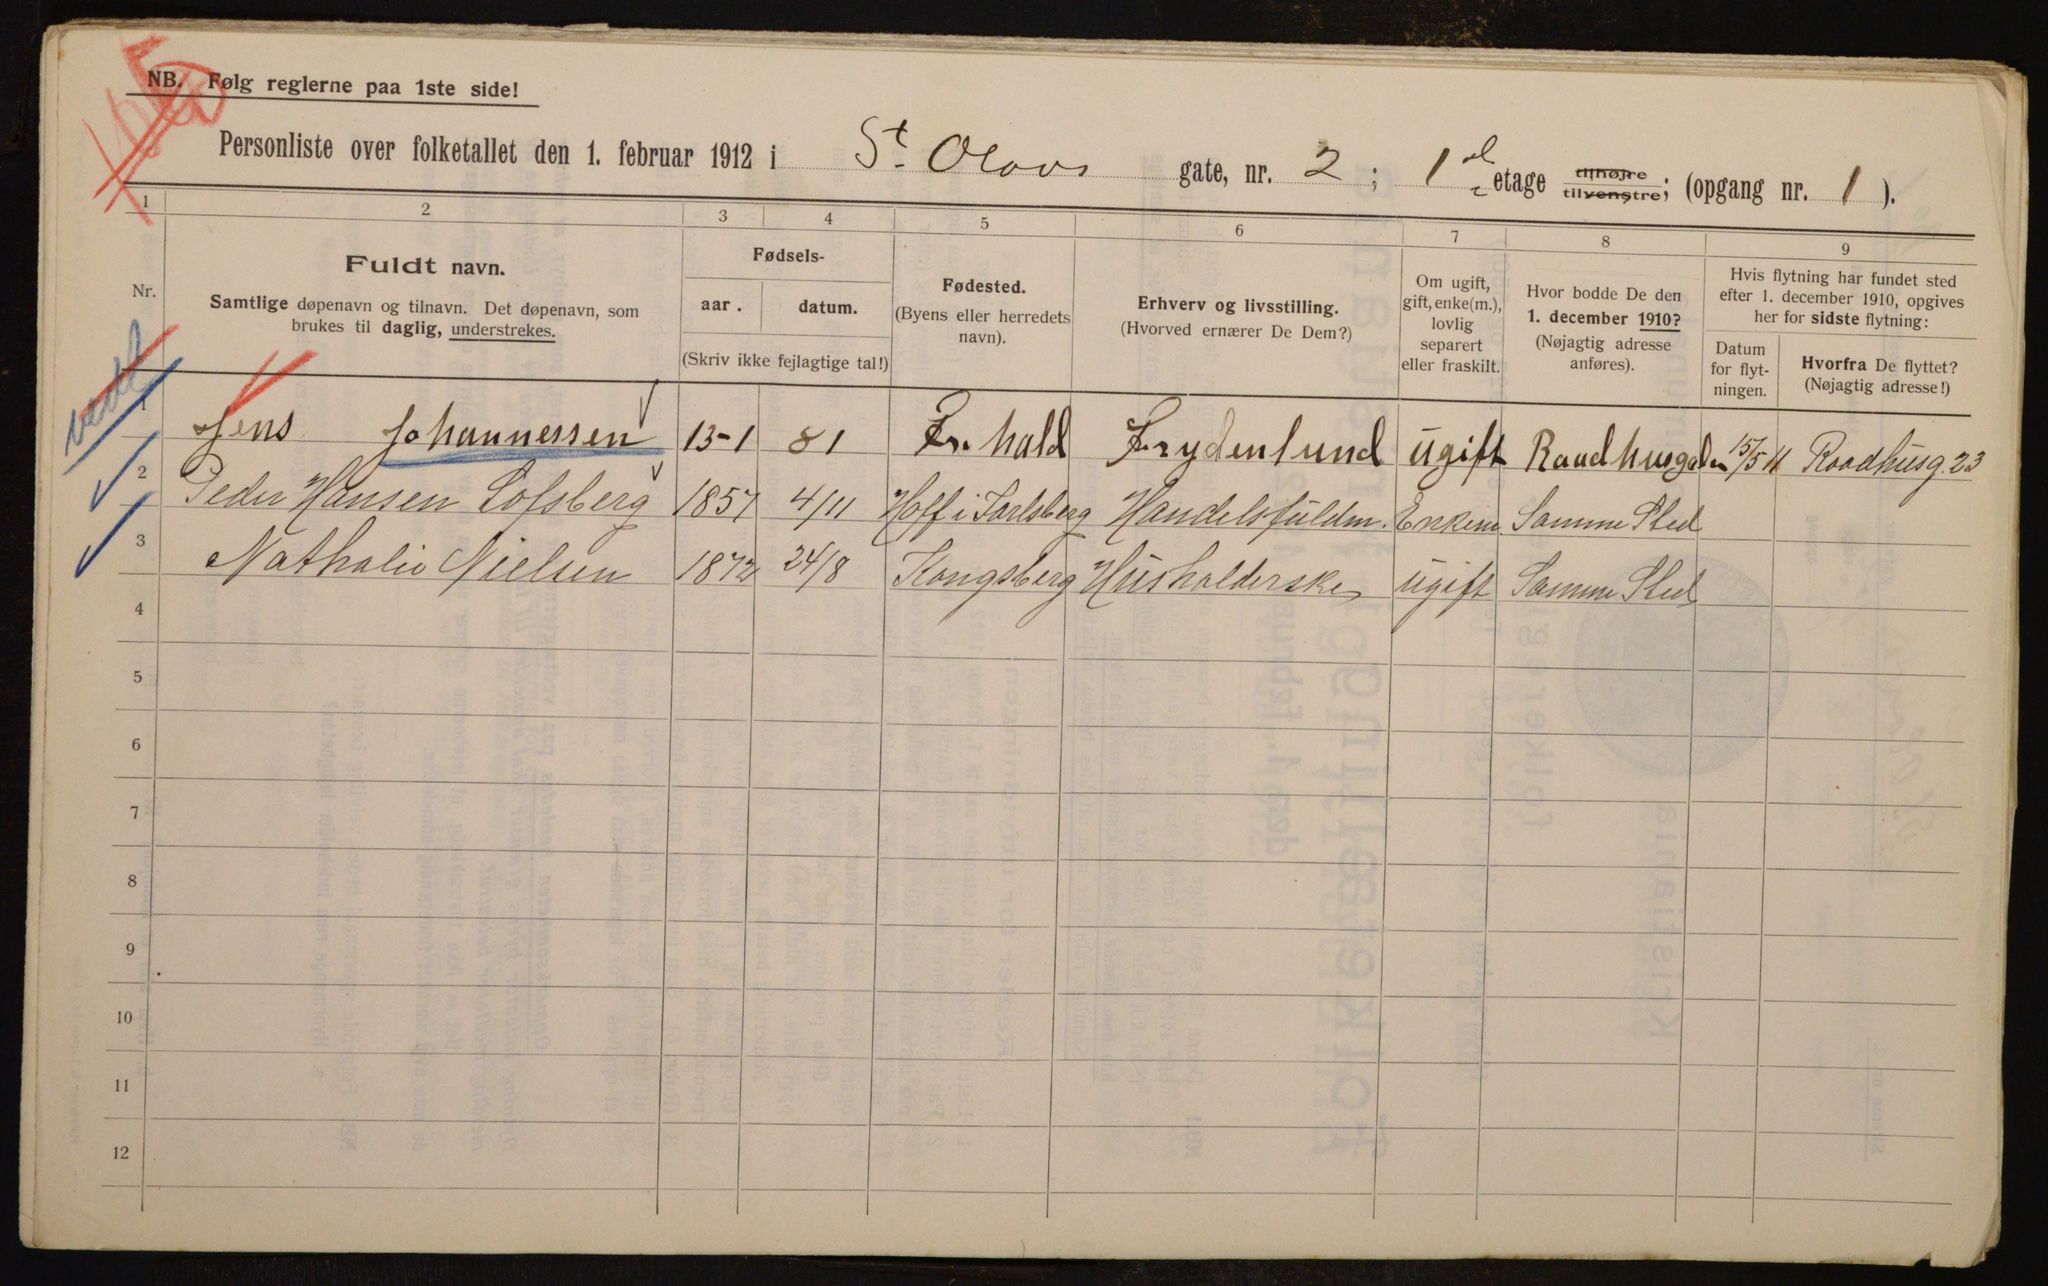 NB. Følg reglerne paa 1ste side!
Personliste over folketallet den 1. februar 1912 i St. Olavs gate, nr. 2; 1 etage tilhøjre tilvenstre; (opgang nr. 1).
1 2 3 4 5 6 7 8 9
Nr.
Fuldt navn.
Samtlige døpenavn og tilnavn. Det døpenavn, som
brukes til daglig, understrekes.
Fødsels-
aar. datum.
(Skriv ikke fejlagtige tal!)
Fødested.
(Byens eller herredets
navn).
Erhverv og livsstilling.
(Hvorved ernærer De Dem?)
Om ugift,
gift, enke(m.),
lovlig
separert
eller fraskilt.
Hvor bodde De den
1. december 1910?
(Nøjagtig adresse
anføres).
Hvis flytning har fundet sted
efter 1. december 1910, opgives
her for sidste flytning:
Datum
for flyt-
ningen.
Hvorfra De flyttet?
(Nøjagtig adresse!)
1 Jens Johannessen 13-1 81 Fr. hald Frydenlund ugift Raadhusgaden 15/5 11 Raadhusg. 23
2 Peder Hansen Lofsberg 1857 4/11 Hoff i Jarlsberg Handelsfuldm. Enkem. Samme Sted
3 Nathalie Nielsen 1872 24/8 Kongsberg Husholderske ugift Samme Sted
4
5
6
7
8
9
10
11
12